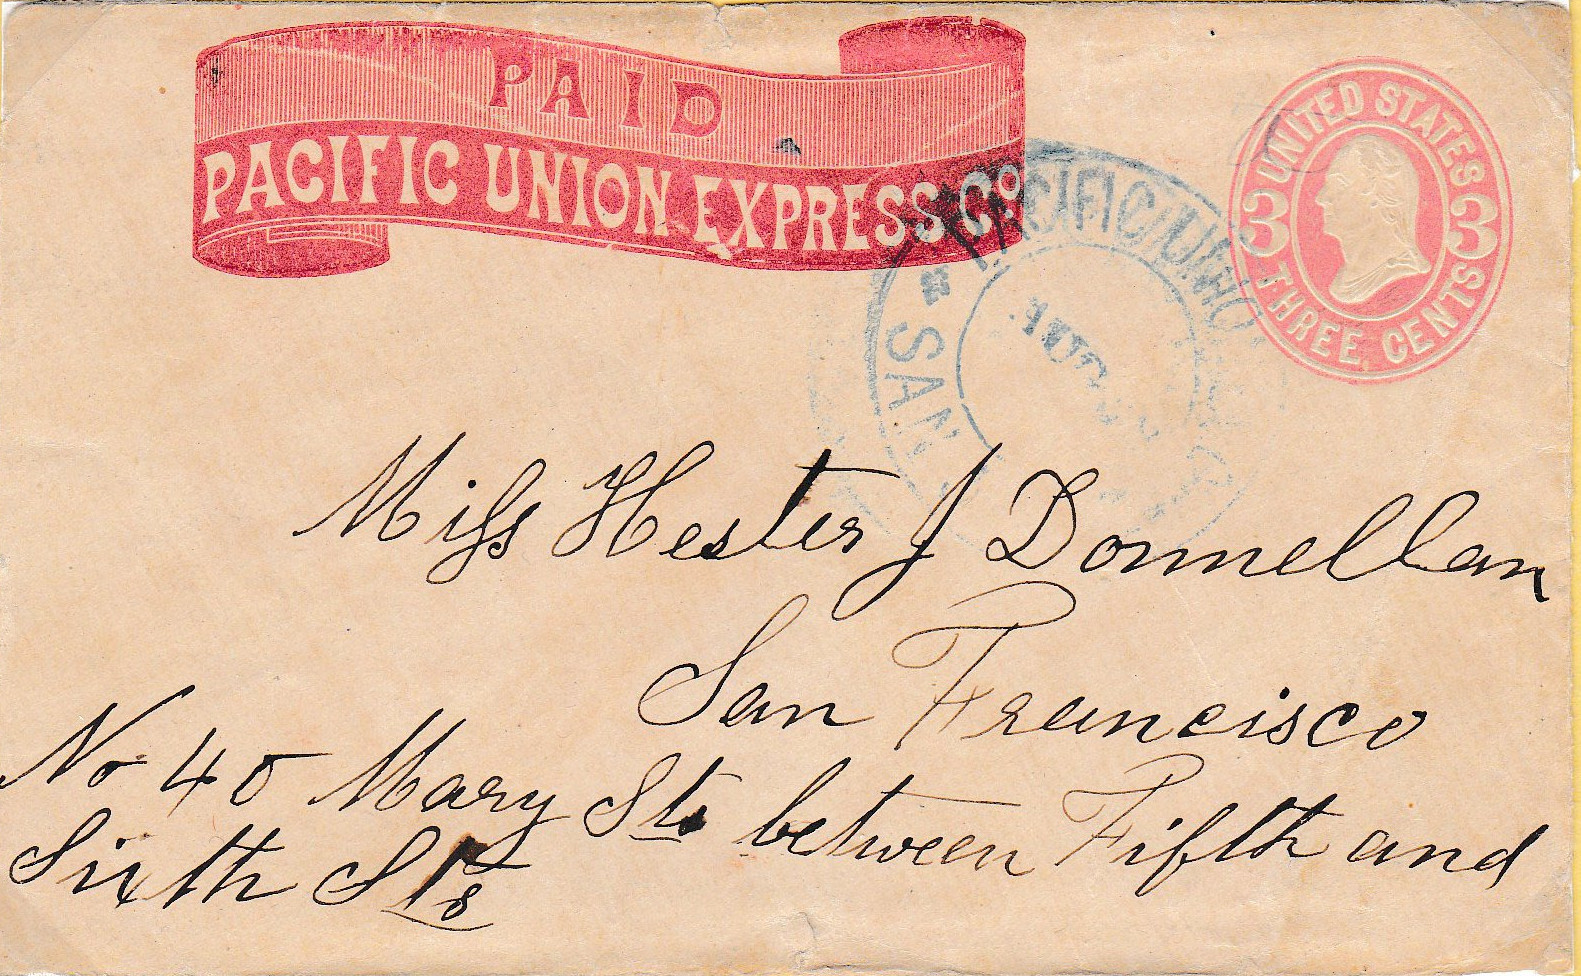 PAID
PACIFIC UNION EXPRESS Co
UNITED STATES
3 3
THREE CENTS
PACIFIC UNIO
SAN
AUG
Miss Hester J Donnellan
San Francisco
No 40 Mary St. between Fifth and
Sixth Sts